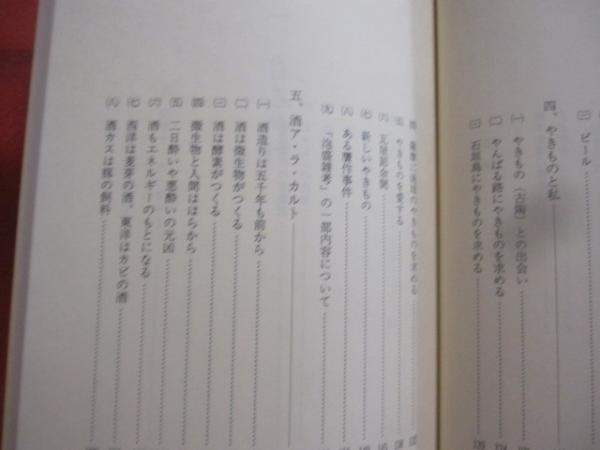 ㈡ ビール
四、やきものと私
㈠ やきもの（古陶）との出会い
㈡ やんばる路にやきものを求める
㈢ 石垣島にやきものを求める
㈣ 薩摩・琉球のやきものを求める
㈤ やきものを愛する
㈥ 瓦屋節余聞
㈦ 新しいやきもの
㈧ ある贋作事件
㈨ 「泡盛雑考」の一部内容について
五、酒ア・ラ・カルト
㈠ 酒造りは五千年も前から
㈡ 酒は微生物がつくる
㈢ 酒は酵素がつくる
㈣ 微生物と人間ははらから
㈤ 二日酔いや悪酔いの元凶
㈥ 酒もエネルギーのもとになる
㈦ 西洋は麦芽の酒、東洋はカビの酒
㈧ 酒カスは豚の飼料